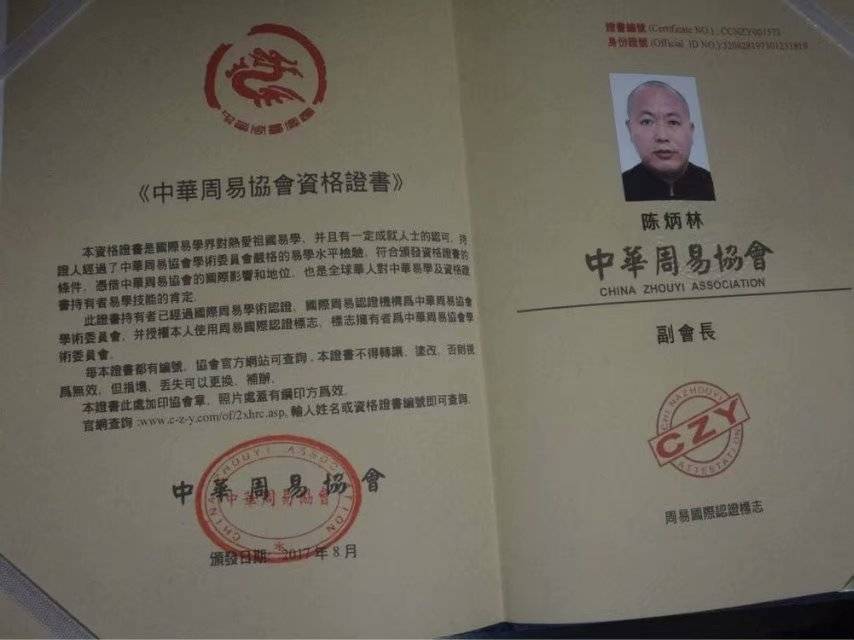 中華周易協會
《中華周易協會資格證書》
本資格證書是國際易學界對熱愛祖國易學，并且有一定成就人士的認可，持
證人經過了中華周易協會學術委員會嚴格的易學水平檢驗，符合頒發資格證書的
條件，憑借中華周易協會的國際影響和地位，也是全球華人對中華易學及資格證
書持有者易學技能的肯定．
此證書持有者已經過國際周易學術認證，國際周易認證機構爲中華周易協會
學術委員會，并授權本人使用周易國際認證標志，標志擁有者爲中華周易協會學
術委員會．
每本證書都有編號，協會官方網站可查詢．本證書不得轉讓、塗改，否則視
爲無效，但損壞、丟失可以更換、補辦．
本證書此處加印協會章，照片處蓋有鋼印方爲效．
官網查詢:www.c-z-y.com/of/2xhrc.asp, 輸人姓名或資格證書編號即可查詢
中華周易協會
CHINA ZHOUYI ASSOCIATION
中華周易協會
頒發日期: 2017年8月
證書編號 (Certificate NO.) : CCNZY001573
身份證號 (Official ID NO.):320828197301251819
陈炳林
中華周易協會
CHINA ZHOUYI ASSOCIATION
副會長
CHINAZHOUYI
CZY
ATTESTATION
周易國際認證標志